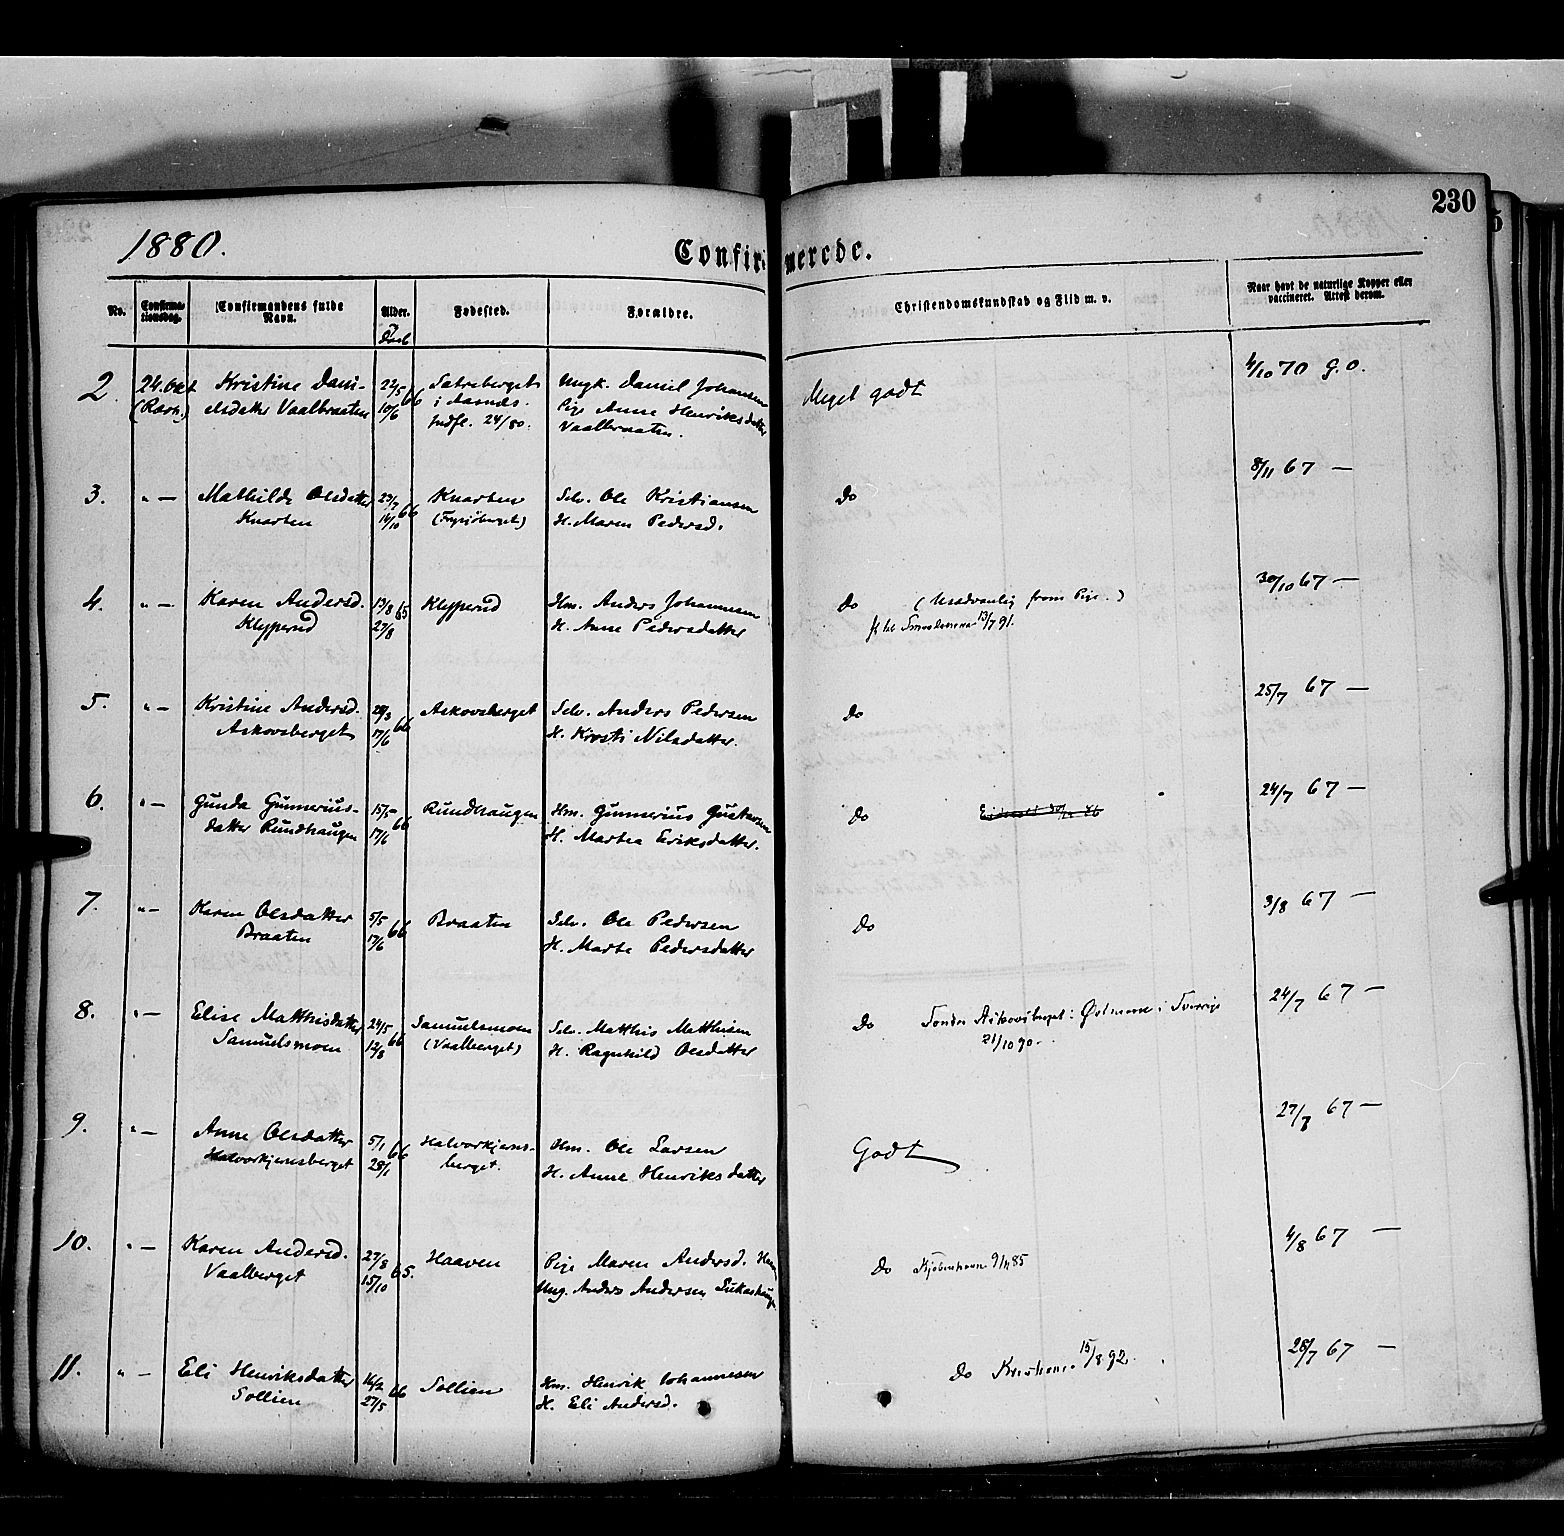 230
1880.
Confirmerede.
No.
Confirma-
tionsdag.
Confirmandens fulde
Navn.
Alder.
Fødested.
Forældre.
Christendomskundskab og Flid m. v.
Naar havt de naturlige Kopper eller
vaccineret. Attest derom.
2. 24. Okt Kristine Dani- 22/5 66 i Aasnæs. Ungk. Daniel Johansen Meget godt 4/10 70 G.O.
elsdatter Vaalbraaten 10/6 Indfl. 24/80. Pige Anne Henriksdatter
Vaalbraaten.
3. " — Mathilde Olsdatter 23/7 66 Knarten Selv. Ole Kristiansen Do 8/11 67 —
Knarten 14/10 (Frysjøberget) H. Maren Pedersd.
4. " — Karen Andersd. 13/8 65 Klypperud Hm. Anders Johannesen Do (Usædvanlig from Pige.) 30/10 67 —
Klypperud 27/8 H. Anne Pedersdatter 13/7 91.
5. " — Kristine Andersd. 66 Askovsberget Selv. Anders Pedersen Do 25/7 67 —
Askovsberget 17/6 H. Kirsti Nilsdatter.
6. " — Gunda Gunnerius- 15/5 66 Rundhaugen Hm. Gunnerius Gustavsen Do 24/7 67 —
datter Rundhaugen 17/6 H. Marthea Eriksdatter.
7. " — Karen Olsdatter 5/5 66 Braaten Selv. Ole Pedersen Do 3/8 67 —
Braaten 17/6 H. Marte Pedersdatter
8. " — Elise Matthisdatter 24/5 66 Samuelsmoen Selv. Matthis Matthisen Do Askovsberget i Østmark i Sverrige 24/7 67 —
Samuelsmoen 12/8 (Vaalberget) H. Ragnhild Olsdatter 21/10 90.
9. " — Anne Olsdatter 5/1 66 Halvorkjerns- Hm. Ole Larsen Godt 27/7 67 —
Halvorkjernsberget 28/1 berget. H. Anne Henriksdatter
10. " — Karen Andersd. 27/8 65. Haaven Pige Maren Andersd. Do Kjøbenhavn 9/11 85 4/8 67 —
Vaalberget 15/10 Ung. Anders Andersen Lukashaugen
11. " — Eli Henriksdatter 16/2 66 Sollien Hm. Henrik Johannesen Do Kristiania 15/8 92. 28/7 67 —
Sollien 27/5 H. Eli Andersd.